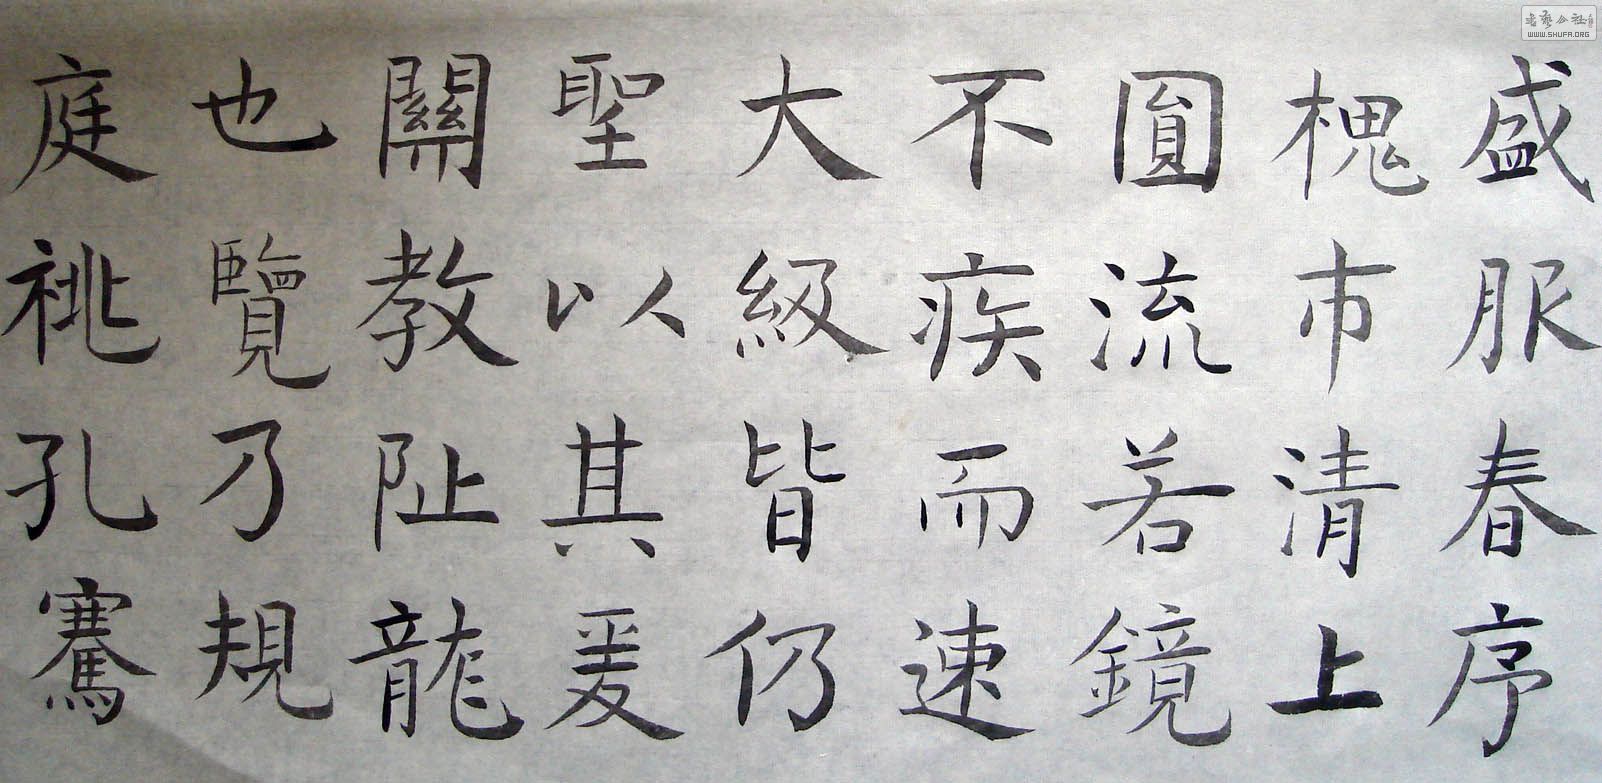 盛服春序
槐市清上
圓流若鏡
不疾而速
大級皆仍
聖以其爰
關教阯龍
也覽乃規
庭祧孔騫
書藝公社
WWW.SHUFA.ORG